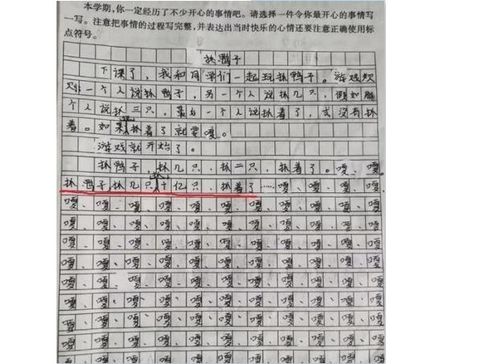 本学期，你一定经历了不少开心的事情吧。请选择一件令你最开心的事情写
一写。注意把事情的过程写完整，并表达出当时快乐的心情还要注意正确使用标
点符号。
抓鸭子
下课了，我和同学们一起玩抓鸭子。游戏规
则一个人说抓鸭子，另一个人说抓几只，假如那
个人说抓三只，第六个人说抓着了，或没有抓
着。如果抓着了就要嘎。
游戏就开始了。
抓鸭子，抓几只，抓二只，抓着了。嘎、嘎。
抓鸭子，抓几只，十亿只，抓着了……嘎、嘎、嘎、
嘎、嘎、嘎、嘎、嘎、嘎、嘎、嘎、
嘎、嘎、嘎、嘎、嘎、嘎、嘎、嘎、
嘎、嘎、嘎、嘎、嘎、嘎、嘎、嘎、
嘎、嘎、嘎、嘎、嘎、嘎、嘎、嘎、
嘎、嘎、嘎、嘎、嘎、嘎、嘎、嘎、
嘎、嘎、嘎、嘎、嘎、嘎、嘎、嘎、
嘎、嘎、嘎、嘎、嘎、嘎、嘎、嘎、
嘎、嘎、嘎、嘎、嘎、嘎、嘎、嘎、
嘎、嘎、嘎、嘎、嘎、嘎、嘎、嘎、